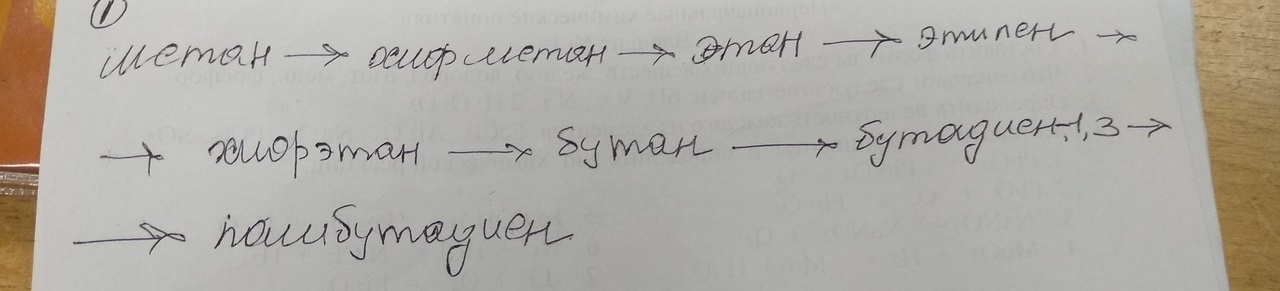 ①
метан → хлорметан → этан → этилен →
→ хлорэтан → бутан → бутадиен-1,3 →
→ полибутадиен